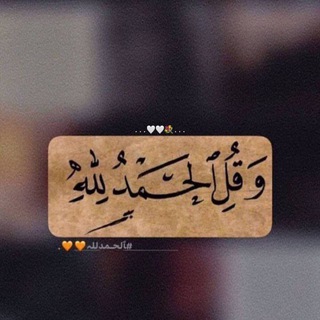 . . . 🤍🤍💐 . . .
وَقُلِ ٱلْحَمْدُ لِلَّهِ
#ألحمدلله🧡🧡.